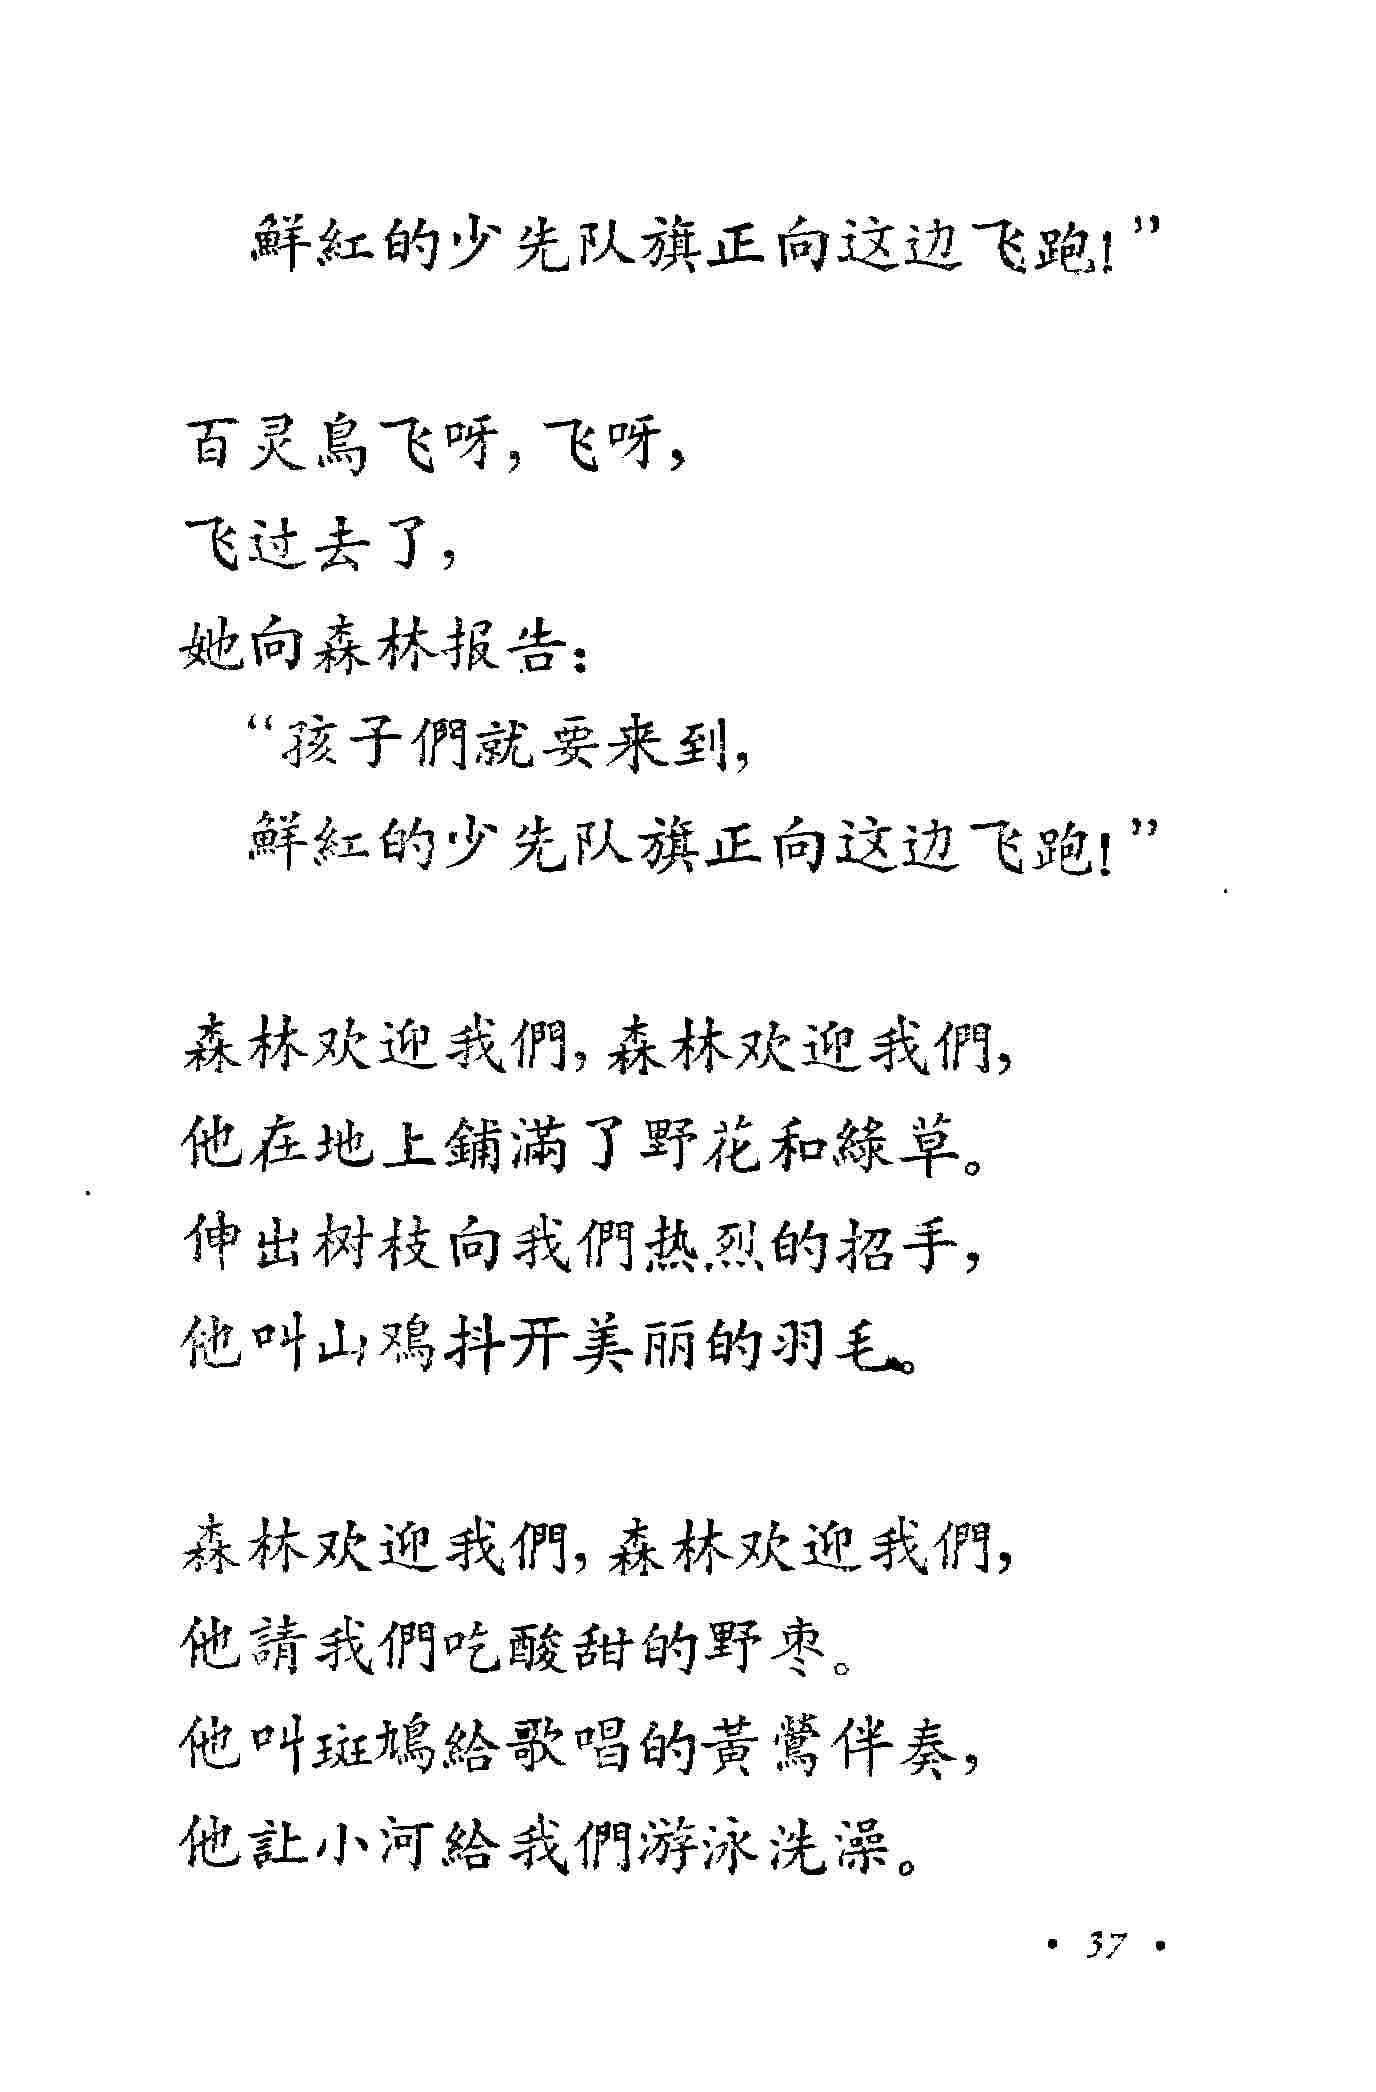 鮮紅的少先队旗正向这边飞跑!”
百灵鳥飞呀,飞呀,
飞过去了,
她向森林报告:
“孩子們就要来到,
鮮紅的少先队旗正向这边飞跑!”
森林欢迎我們,森林欢迎我們,
他在地上鋪滿了野花和綠草。
伸出树枝向我們热烈的招手,
他叫山鳮抖开美丽的羽毛。
森林欢迎我們,森林欢迎我們,
他請我們吃酸甜的野枣。
他叫斑鳩給歌唱的黃鶯伴奏,
他訁上小河給我們游泳洗澡。
• 37 •